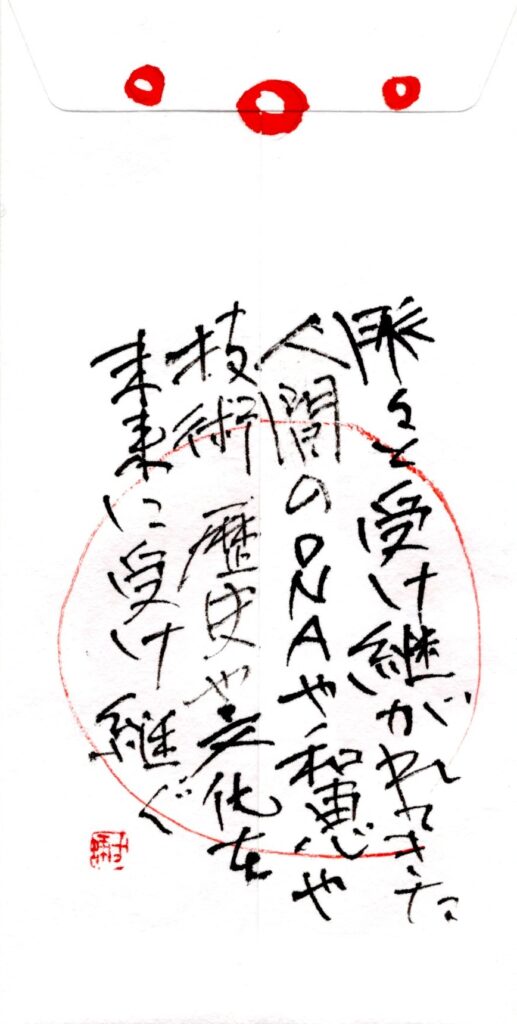 脈々と受け継がれてきた
人間のDNAや知恵や
技術 歴史や文化を
未来に受け継ぐ